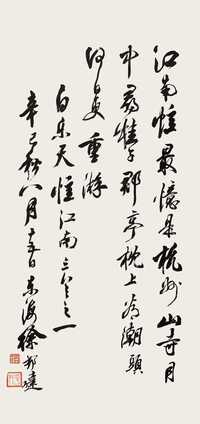 江南憶最憶是杭州山寺月
中尋桂子郡亭枕上看潮頭
何日更重游
白乐天憶江南三首之一
辛巳秋八月十五日东海徐邦達